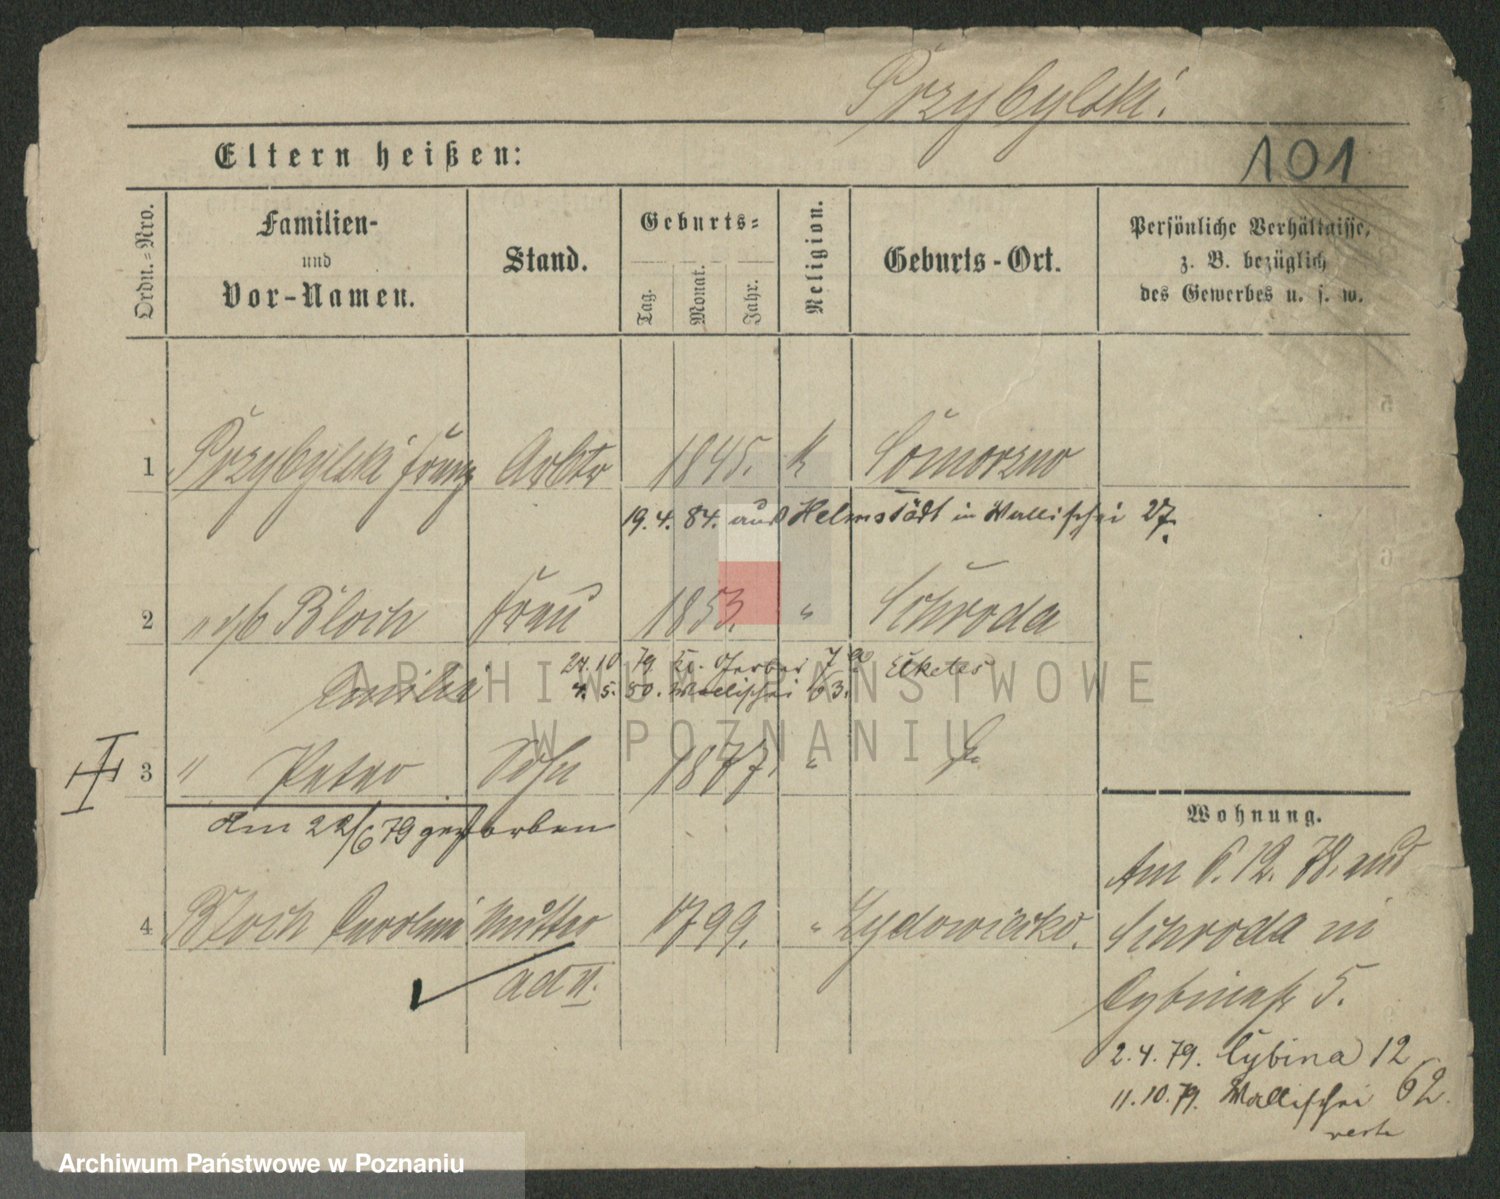 Przybylski.
Eltern heißen:
101
Ordn.-Nro.
Familien-
und
Vor-Namen.
Stand.
Geburts-
Tag.
Monat.
Jahr.
Religion.
Geburts-Ort.
Persönliche Verhältnisse,
z. B. bezüglich
des Gewerbes u. s. w.
1 Przybylski Franz Arbtr 1845. k
19. 4. 84. aus Helmstädt in Wallischei 27.
2 " geb Bloch Frau 1853. " Schroda
24. 10 79 Kl. Gerber 7
4. 5. 80. Wallischei 63.
3 " Peter Sohn 1877. "
Am 22/6 79 gestorben
4 Bloch Mutter 1799. "
ad II.
Wohnung.
Am 6. 12. 78. aus
Schroda in
Cybinastr 5.
2. 4. 79. Cybina 12
11. 10. 79. Wallischei 62.
ARCHIWUM PAŃSTWOWE
W POZNANIU
Archiwum Państwowe w Poznaniu